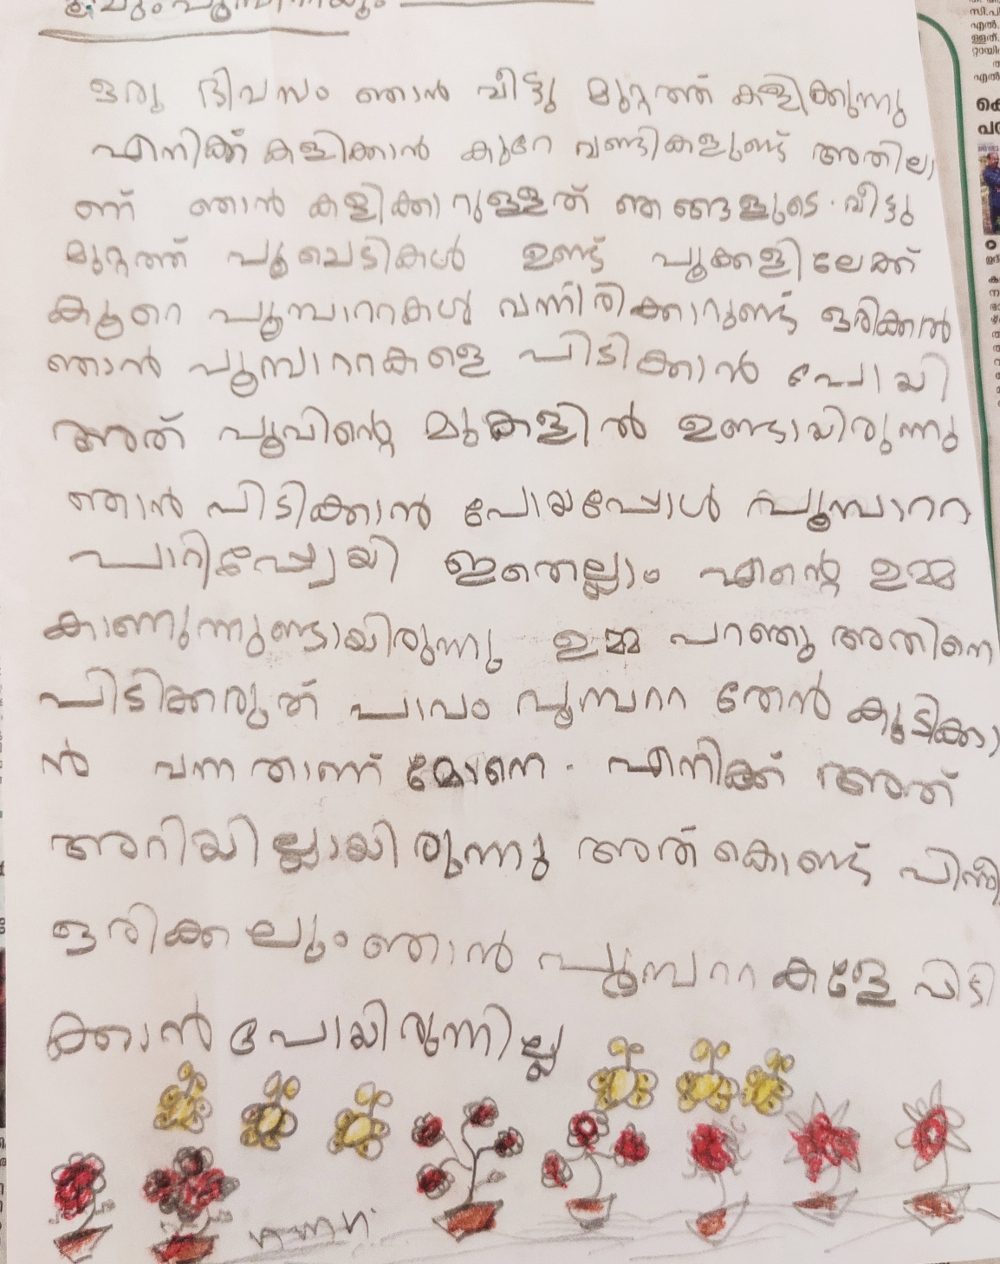 ഒരു ദിവസം ഞാൻ വീട്ടു മുറ്റത്ത് കളിക്കുന്നു
എനിക്ക് കളിക്കാൻ കുറേ വണ്ടികളുണ്ട് അതിലാ
ണ് ഞാൻ കളിക്കാറുള്ളത് ഞങ്ങളുടെ. വീട്ടു
മുറ്റത്ത് പൂചെടികൾ ഉണ്ട് പൂക്കളിലേക്ക്
കൂറെ പൂമ്പാററകൾ വന്നിരിക്കാറുണ്ട് ഒരിക്കൽ
ഞാൻ പൂമ്പാററകളെ പിടിക്കാൻ പോയി
അത് പൂവിന്റെ മുകളിൽ ഉണ്ടായിരുന്നു
ഞാൻ പിടിക്കാൻ പോയപ്പോൾ പൂമ്പാററ
പാറിപ്പോയി ഇതെല്ലാം എന്റെ ഉമ്മ
കാണുന്നുണ്ടായിരുന്നു ഉമ്മ പറഞ്ഞു അതിനെ
പിടിക്കരുത് പാവം പൂമ്പററ തേൻ കുടിക്കാ
ൻ വന്നതാണ് മോനെ. എനിക്ക് അത്
അറിയില്ലായിരുന്നു അത് കൊണ്ട് പിന്നീ
ഒരിക്കലും ഞാൻ പൂമ്പററകളേ പിടി
ക്കാൻ പോയിരുന്നില്ല